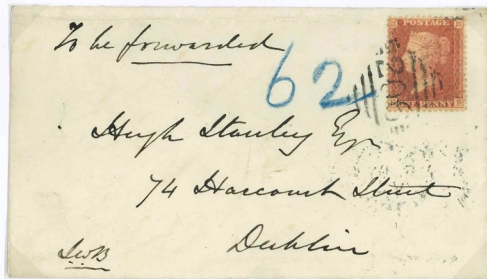 To be forwarded
62
POSTAGE
ONE PENNY
Hugh Stanley Esqr
74 Harcourt Street
Dublin